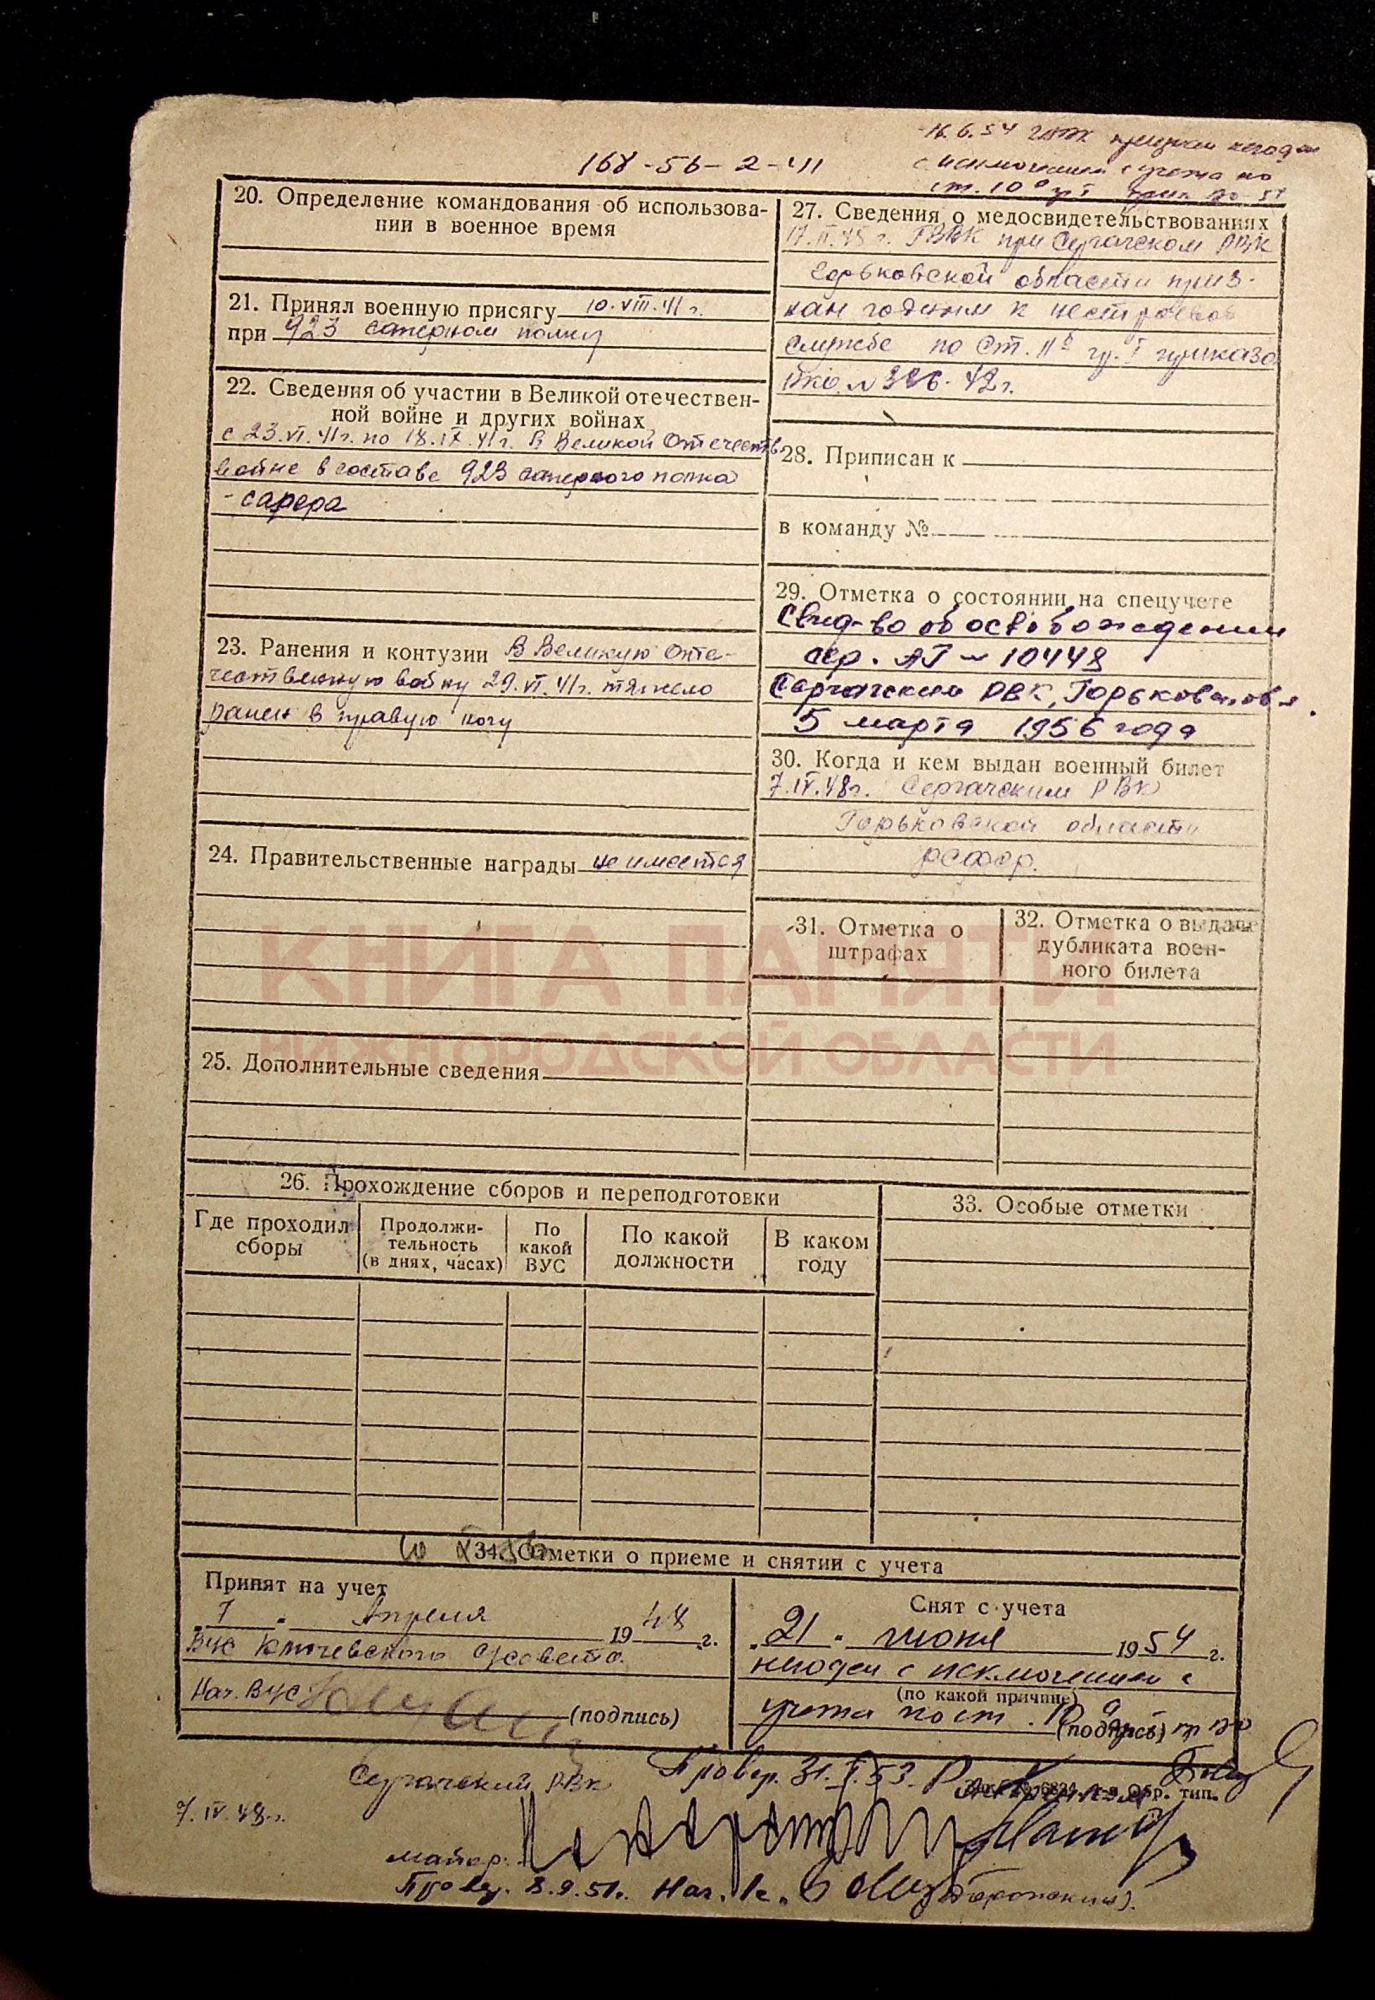 168-56-2-41
16.6.54 признан негоден
с исключением с учета по
ст. 10
20. Определение командования об использова-
нии в военное время
21. Принял военную присягу 10.VIII.41г.
при 923 саперном полку
22. Сведения об участии в Великой отечествен-
ной войне и других войнах
с 23.VI.41г. по 18.IX.41г. В Великой Отечеств.
войне в составе 923 саперного полка
- сапера
23. Ранения и контузии В Великую Оте-
чественную войну 29.VI.41г. тяжело
ранен в правую ногу
24. Правительственные награды не имеется
25. Дополнительные сведения
26. Прохождение сборов и переподготовки
Где проходил сборы
Продолжи-
тельность
(в днях, часах)
По
какой
ВУС
По какой
должности
В каком
году
27. Сведения о медосвидетельствованиях
ГВВК при Сергачском РВК
Горьковской области приз-
нан годным к нестроевой
службе по ст. II гр. I приказа
НКО № 336-42г.
28. Приписан к
в команду №
29. Отметка о состоянии на спецучете
Свид-во об освобождении
сер. АГ-10448
Сергачский РВК, Горьковс. обл.
5 марта 1956 года
30. Когда и кем выдан военный билет
7.IV.48г. Сергачским РВК
Горьковской области
РСФСР.
31. Отметка о
штрафах
32. Отметка о выдаче
дубликата воен-
ного билета
33. Особые отметки
КНИГА ПАМЯТИ
НИЖЕГОРОДСКОЙ ОБЛАСТИ
34. Отметки о приеме и снятии с учета
Принят на учет
"7" Апреля 1948 г.
ВУС Ключевского с/совета
Нач. ВУС (подпись)
Снят с учета
"21" июня 1954 г.
негоден с исключением с
(по какой причине)
учета по ст. 10
(подпись)
Сергачский РВК
Провер. 31. 53.
тип.
7.IV.48г.
майор
Провер. 3.9.51г. Нач.